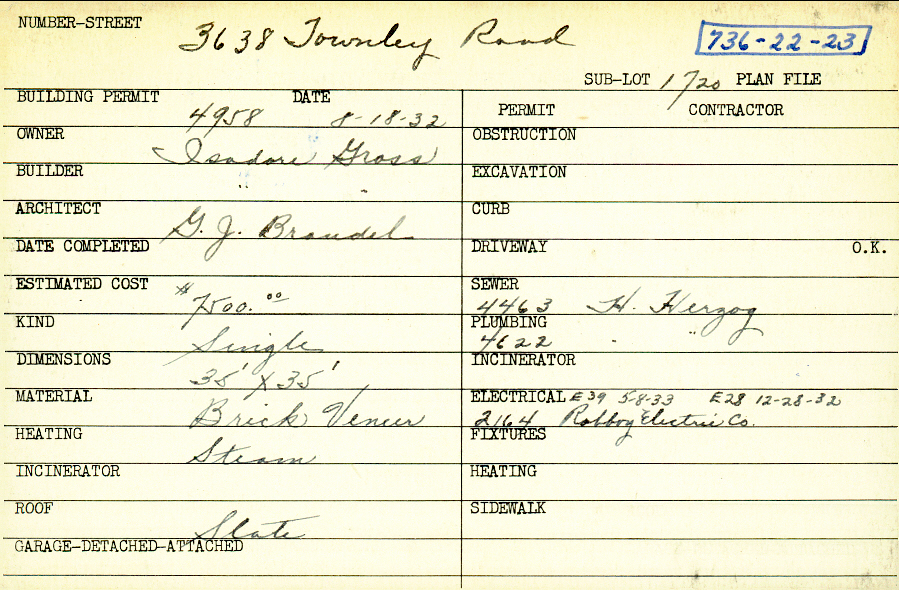 NUMBER-STREET 3638 Townley Road 736-22-23
SUB-LOT 1720 PLAN FILE
BUILDING PERMIT 4958 DATE 8-18-32
PERMIT CONTRACTOR
OWNER Isadore Gross
OBSTRUCTION
BUILDER " "
EXCAVATION
ARCHITECT G. J. Brandel
CURB
DATE COMPLETED
DRIVEWAY O.K.
ESTIMATED COST $7500.00
SEWER 4463 H. Herzog
KIND Single
PLUMBING 4622 " "
DIMENSIONS 35' X 35'
INCINERATOR
MATERIAL Brick Veneer
ELECTRICAL E39 5-8-33 E28 12-28-32
2164 Robboy Electric Co.
HEATING Steam
FIXTURES
INCINERATOR
HEATING
ROOF Slate
SIDEWALK
GARAGE-DETACHED-ATTACHED